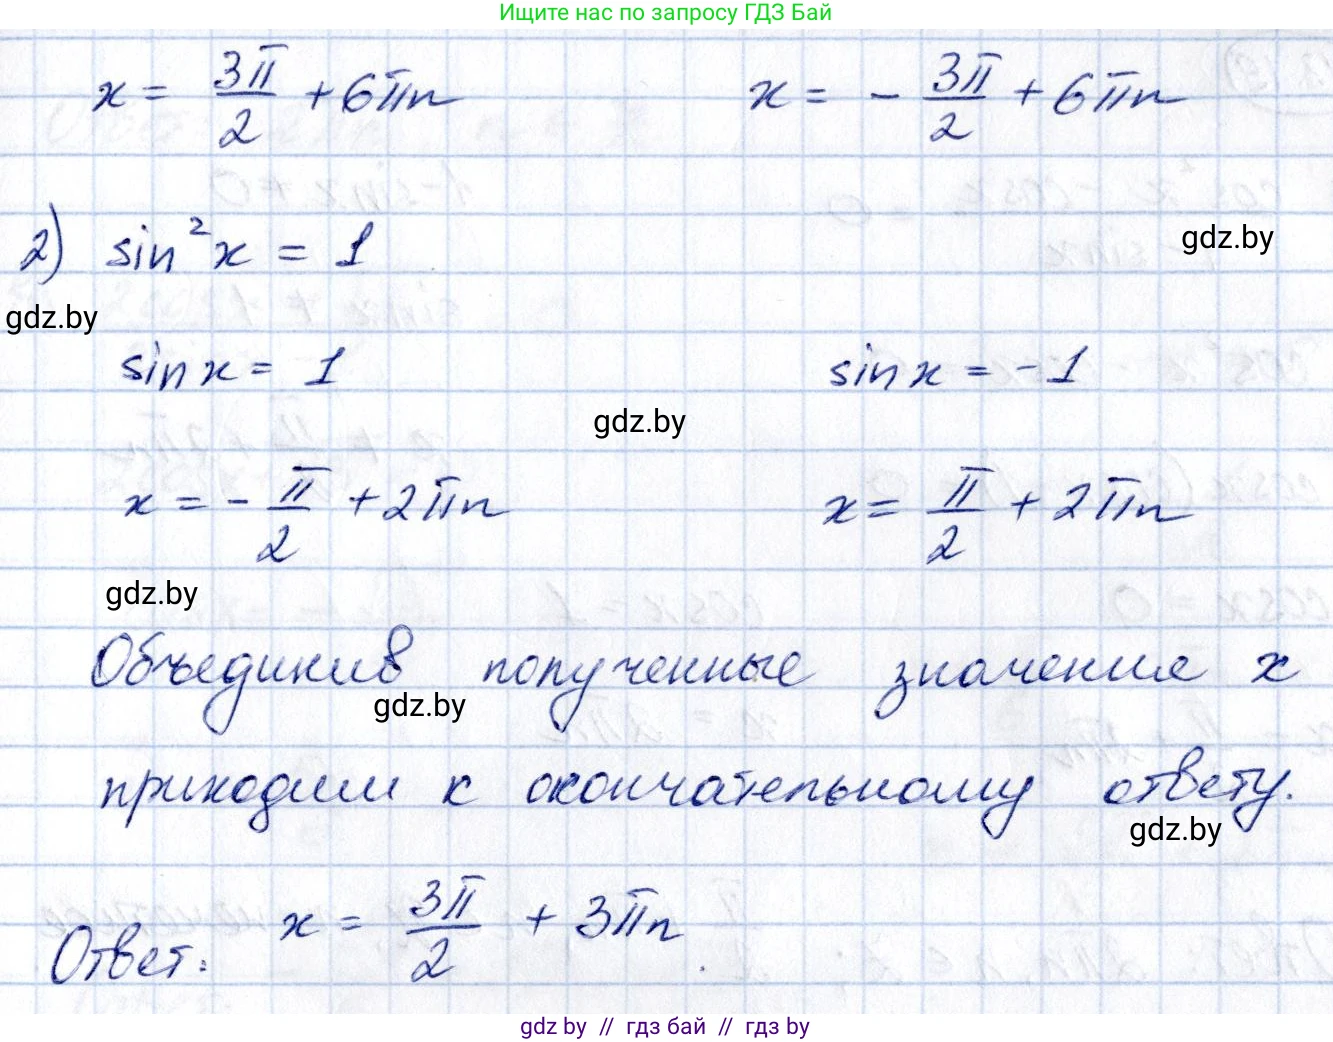 Ищите нас по запросу ГДЗ Бай
x = 3π/2 + 6πn x = - 3π/2 + 6πn
2) sin²x = 1
gdz.by
gdz.by
sin x = 1 sin x = -1
gdz.by
x = - π/2 + 2πn x = π/2 + 2πn
gdz.by
Объединив полученные значения x
gdz.by
приходим к окончательному ответу.
gdz.by
Ответ: x = 3π/2 + 3πn
gdz by // гдз бай // гдз by